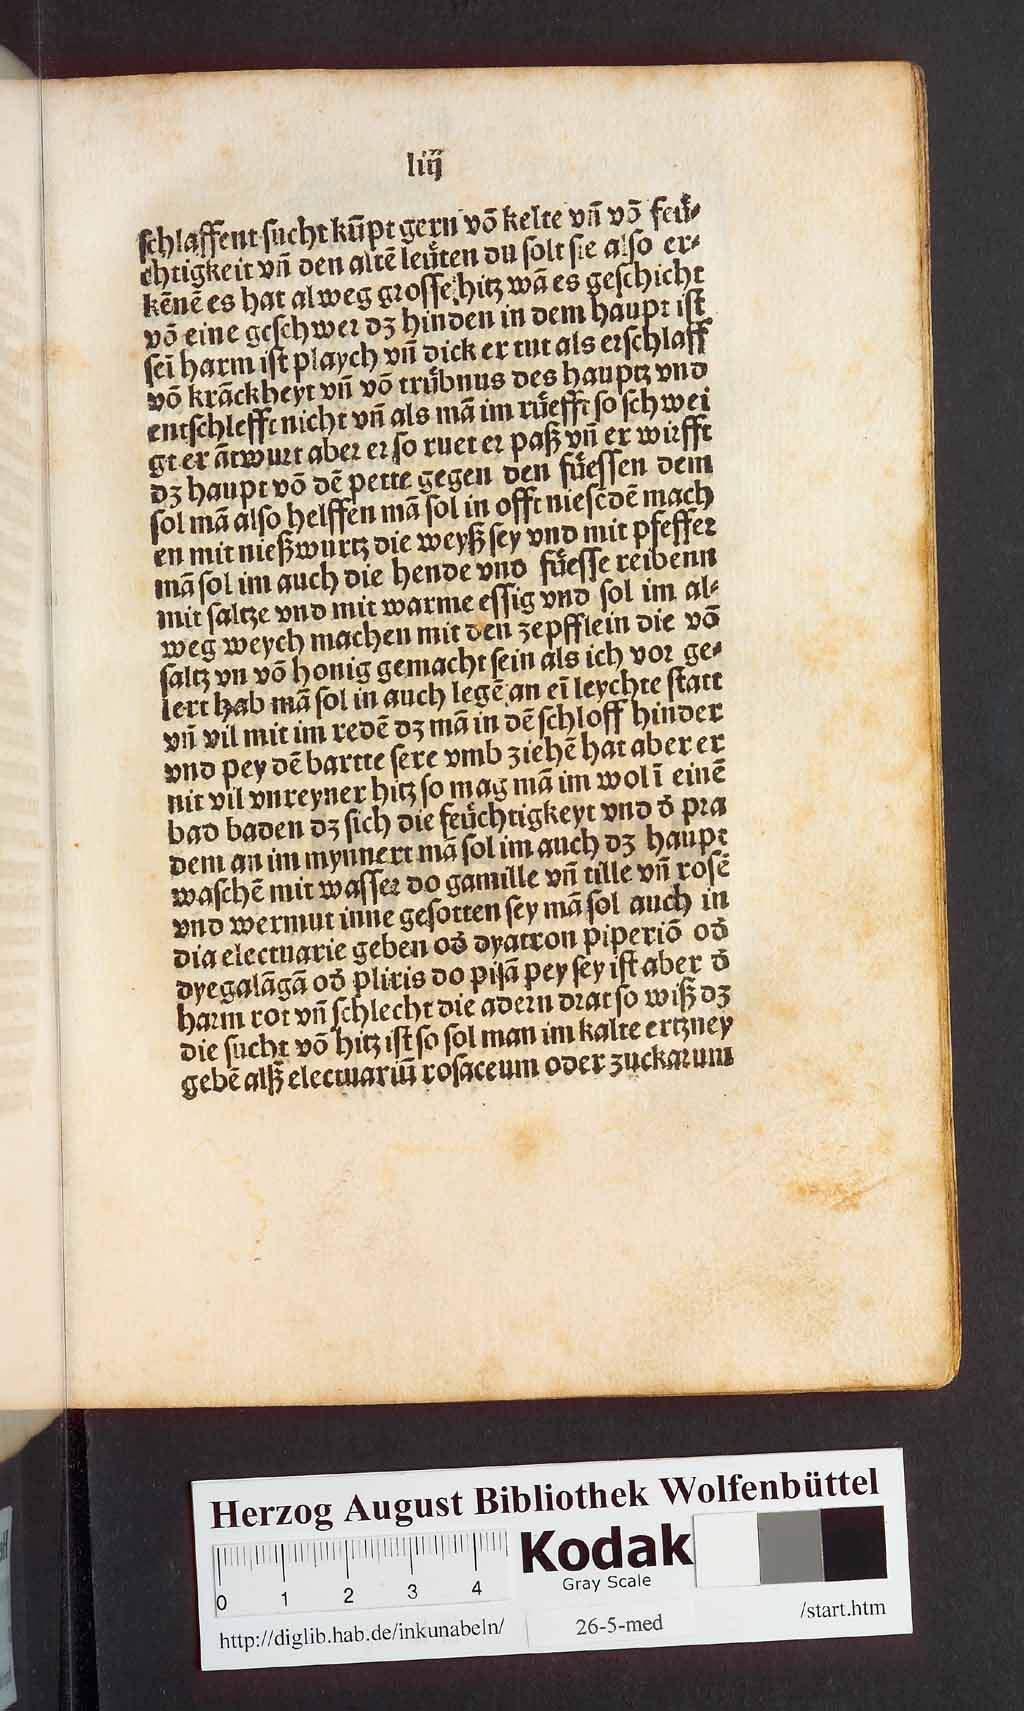 liiij
ſchlaffent ſucht kūpt gern vō kelte vn̄ vō feuͤ⸗
chtigkeit vn̄ den altē leuͤten du ſolt ſie alſo er⸗
kēnē es hat alweg groſſe hitz wā es geſchicht
vō eine geſchwer dʒ hinden in dem haupt iſt
ſeī harm iſt playch vn̄ dick er tut als erſchlaff
vō krāckheyt vn̄ vō truͤbnus des hauptz vnd
entſchlefft nicht vn̄ als mā im ruͤefft ſo ſchwei
gt er ātwurt aber er ſo ruet er paß vn̄ er wirfft
dʒ haupt vō dē pette gegen den fuͤeſſen dem
ſol mā alſo helffen mā ſol in offt nieſēdē mach
en mit nießwurtz die weyß ſey vnd mit pfeffer
mā ſol im auch die hende vnd fuͤeſſe reibenn
mit ſaltze vnd mit warme eſſig vnd ſol im al⸗
weg weych machen mit den zepfflein die vō
ſaltz vn vō honig gemacht ſein als ich vor ge⸗
lert hab mā ſol in auch legē an eī leychte ſtatt
vn̄ vil mit im redē dʒ mā in dē ſchloff hinder
vnd pey dē bartte ſere vmb ziehē hat aber er
nit vil vnreyner hitz ſo mag mā im wol ī einē
bad baden dʒ ſich die feuͤchtigkeyt vnd d̓ pra
dem an im mynnert mā ſol im auch dʒ haupt
waſchē mit waſſer do gamille vn̄ tille vn̄ roſē
vnd wermut inne geſotten ſey mā ſol auch in
dia electuarie geben od̓ dyatron piperiō od̓
dyegalāgā od̓ pliris do piſā pey ſey iſt aber d̓
harm rot vn̄ ſchlecht die adern drat ſo wiß dʒ
die ſucht vō hitz iſt ſo ſol man im kalte ertzney
gebē alß electuariū roſaceum oder zuckarum
Herzog August Bibliothek Wolfenbüttel
Kodak
Gray Scale
0 1 2 3 4
http://diglib.hab.de/inkunabeln/
26-5-med
/start.htm